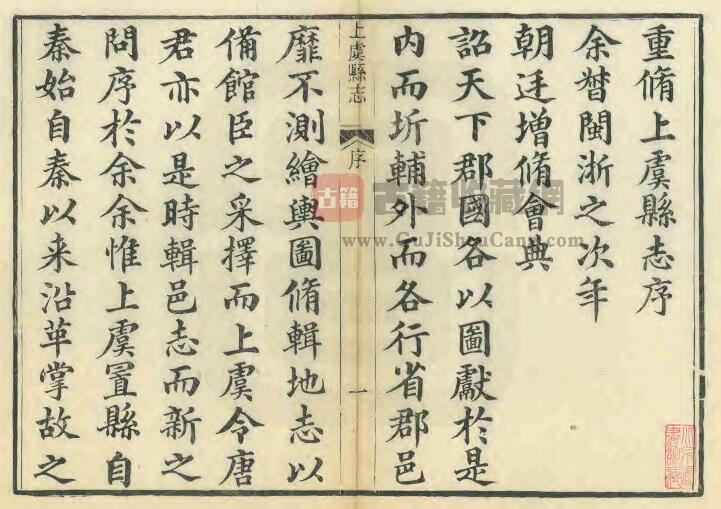 重脩上虞縣志序
余督閩浙之次年
朝廷增脩會典
詔天下郡國各以圖獻於是
内而圻輔外而各行省郡邑
上虞縣志
序
一
靡不測繪輿圖脩輯地志以
備館臣之采擇而上虞令唐
君亦以是時輯邑志而新之
問序於余余惟上虞置縣自
秦始自秦以来沿革掌故之
古籍
古籍收藏網
www.GuJiShouCang.com